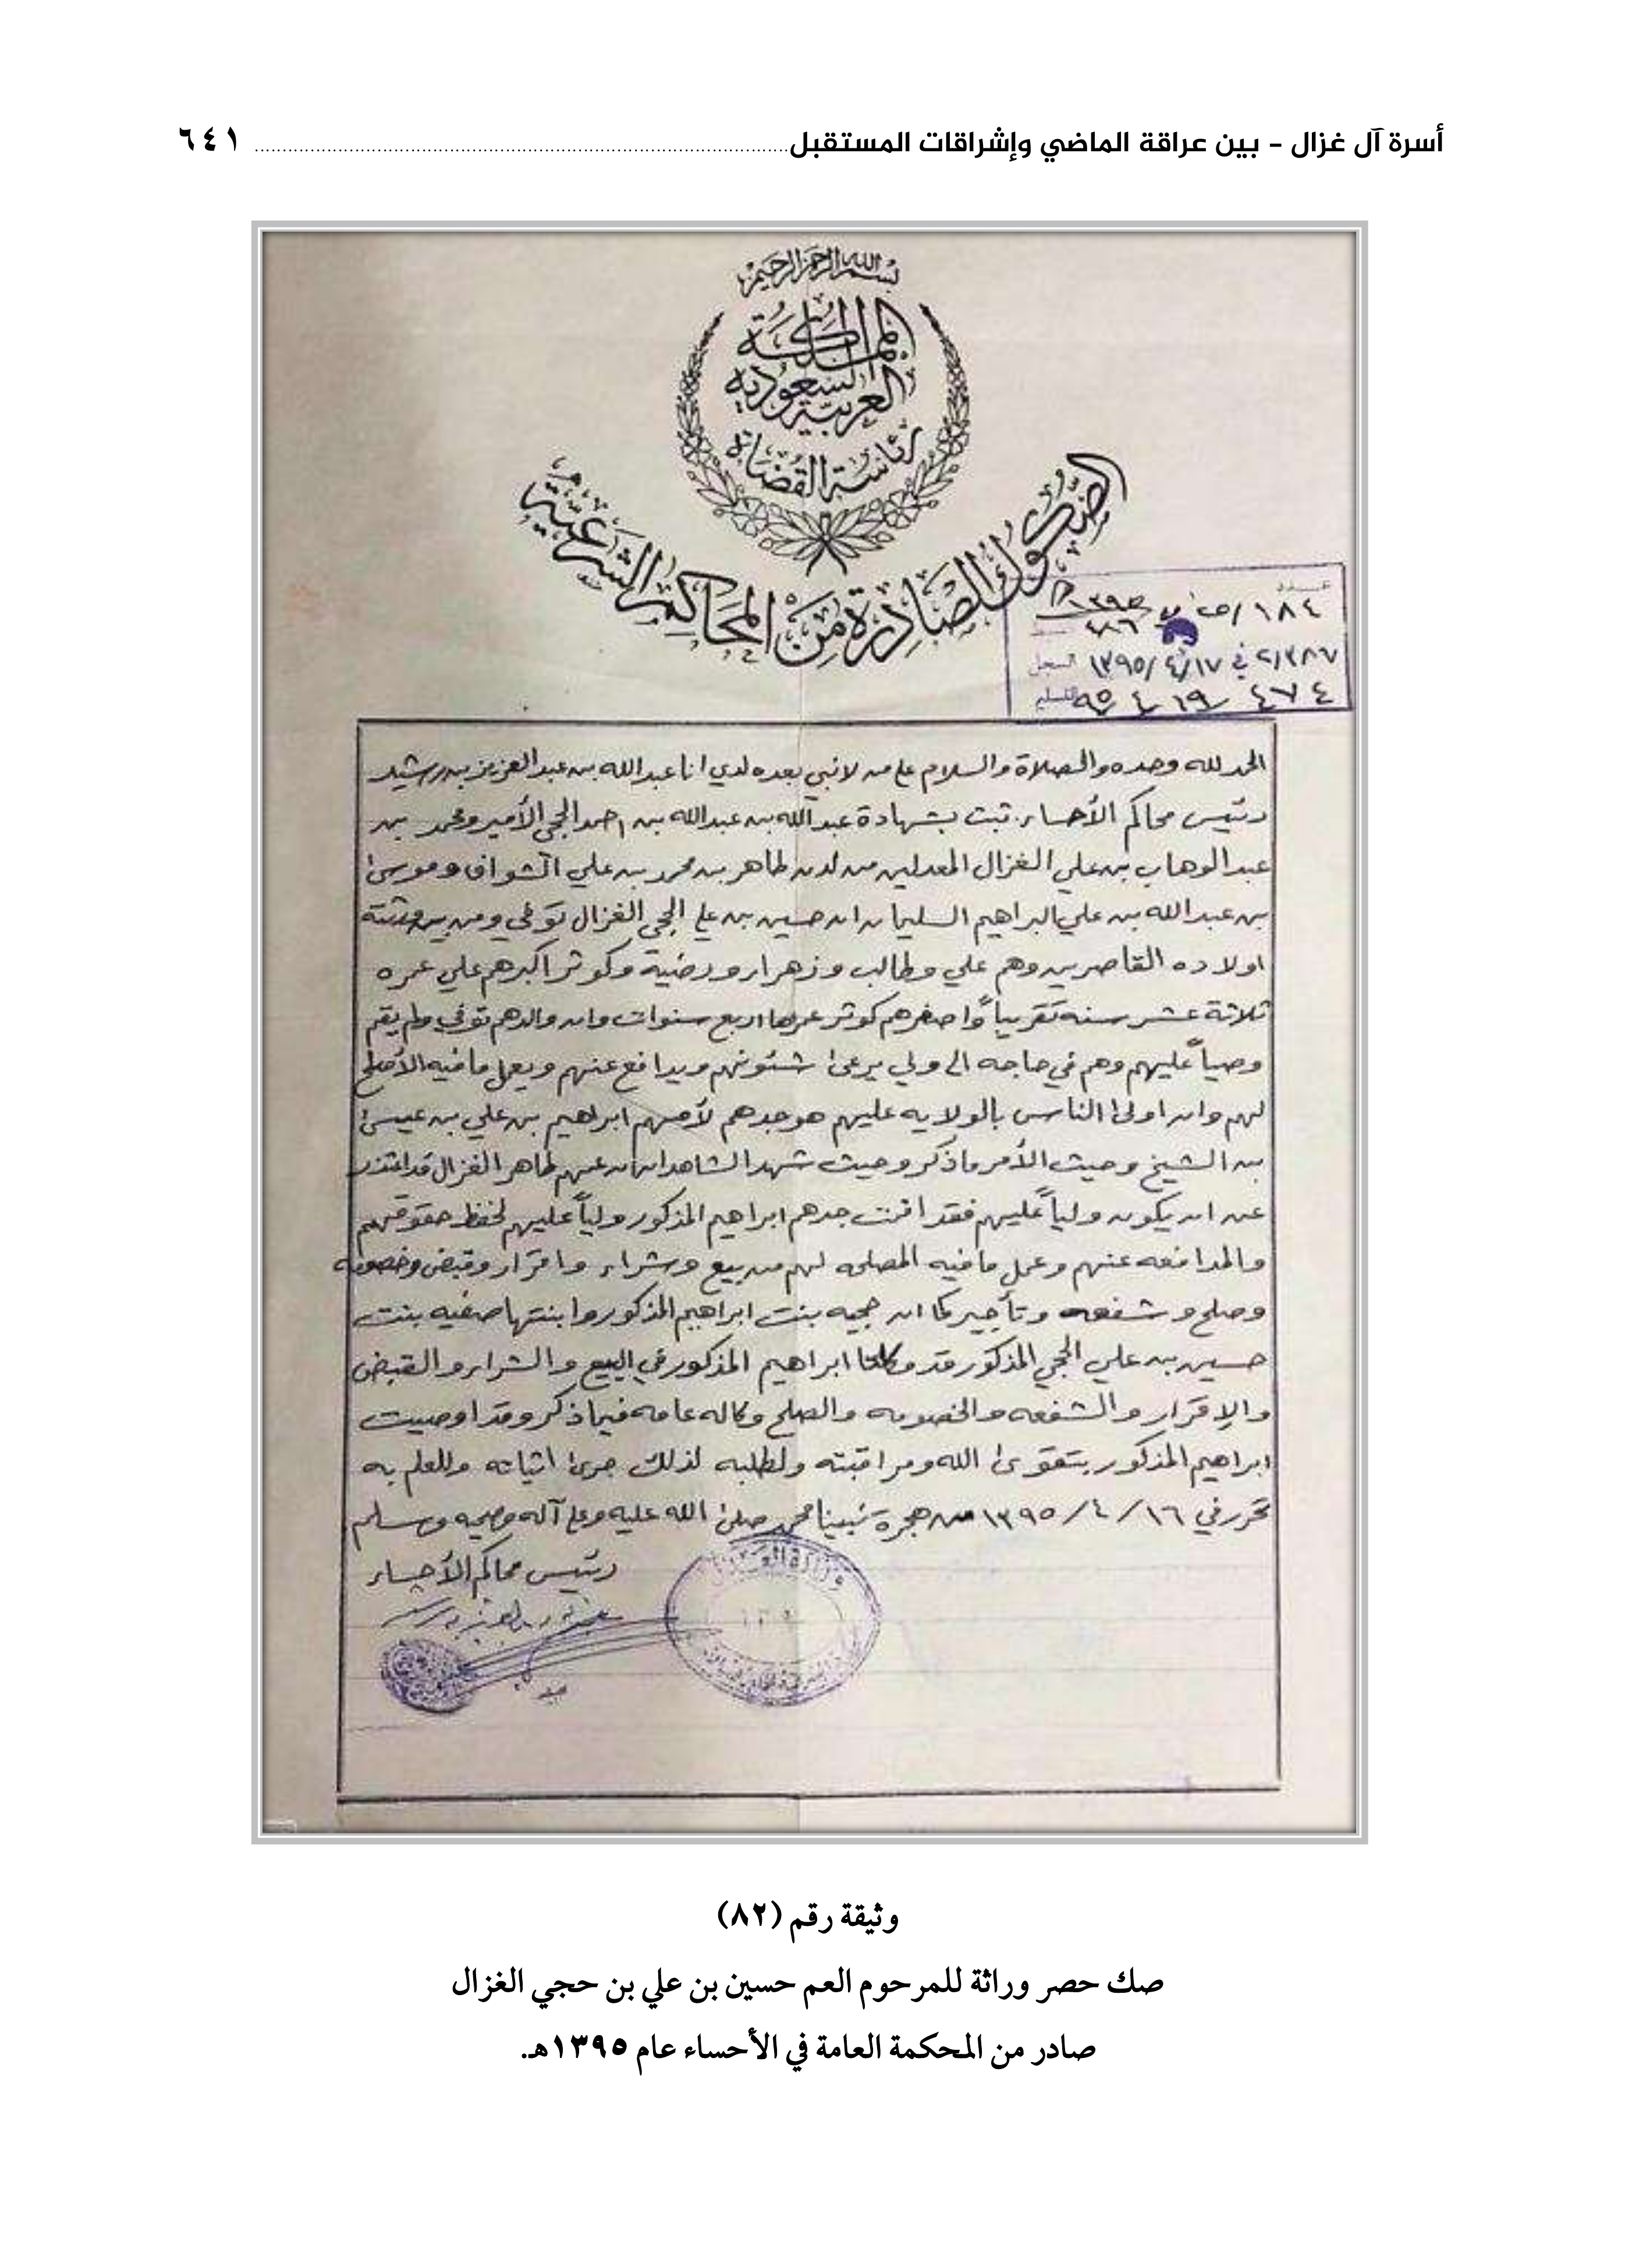 أسرة آل غزال - بين عراقة الماضي وإشراقات المستقبل ٦٤١
بسم الله الرحمن الرحيم
المملكة
العربية السعودية
رئاسة القضاة
الصكوك الصادرة من المحاكم الشرعية
عدد
١٨٤/ص ١٣٩٥
٢/٣٨٧ في ١٣٩٥/٤/١٧ السجل
٤٧٤ ١٩ ٤ ٩٥
الحمد لله وحده والصلاة والسلام على من لا نبي بعده لدي انا عبدالله بن عبدالعزيز بن رشيد
رئيس محاكم الأحساء ثبت بشهادة عبدالله بن عبدالله بن احمد الحجي الأمير ومحمد بن
عبدالوهاب بن علي الغزال المعدلين من لدن طاهر بن محمد بن علي الشواف وموسى
بن عبدالله بن علي البراهيم السليمان ان حسين بن علي الحجي الغزال توفي ومن بين ورثته
اولاده القاصرين وهم علي وطالب وزهراء ورضية وكوثر اكبرهم علي عمره
ثلاثة عشر سنه تقريباً واصغرهم كوثر عمرها اربع سنوات وان والدهم توفي ولم يقم
وصياً عليهم وهم في حاجه الى ولي يرعى شئونهم ويدافع عنهم ويعمل ما فيه الأصلح
لهم وان اولى الناس بالولايه عليهم هو جدهم لأمهم ابراهيم بن علي بن عيسى
بن الشيخ وحيث الأمر ما ذكر وحيث شهد الشاهدان ان عمهم طاهر الغزال قد اعتذر
عن ان يكون ولياً عليهم فقد اقمت جدهم ابراهيم المذكور ولياً عليهم لحفظ حقوقهم
والمدافعه عنهم وعمل ما فيه المصلحه لهم من بيع وشراء واقرار وقبض وخصومه
وصلح وشفعه وتأجير كما ان حجيه بنت ابراهيم المذكور وابنتها صفيه بنت
حسين بن علي الحجي المذكور قد وكلتا ابراهيم المذكور في البيع والشراء والقبض
والإقرار والشفعه والخصومه والصلح وكاله عامه فيما ذكر وقد اوصيت
ابراهيم المذكور بتقوى الله ومراقبته ولطلبه لذلك جرى اثباته وللعلم به
تحرر في ١٦/ ٤/ ١٣٩٥ من هجرة نبينا محمد صلى الله عليه وعلى آله وصحبه وسلم
رئيس محاكم الأحساء
وزارة العدل
وثيقة رقم (٨٢)
صك حصر وراثة للمرحوم العم حسين بن علي بن حجي الغزال
صادر من المحكمة العامة في الأحساء عام ١٣٩٥هـ.